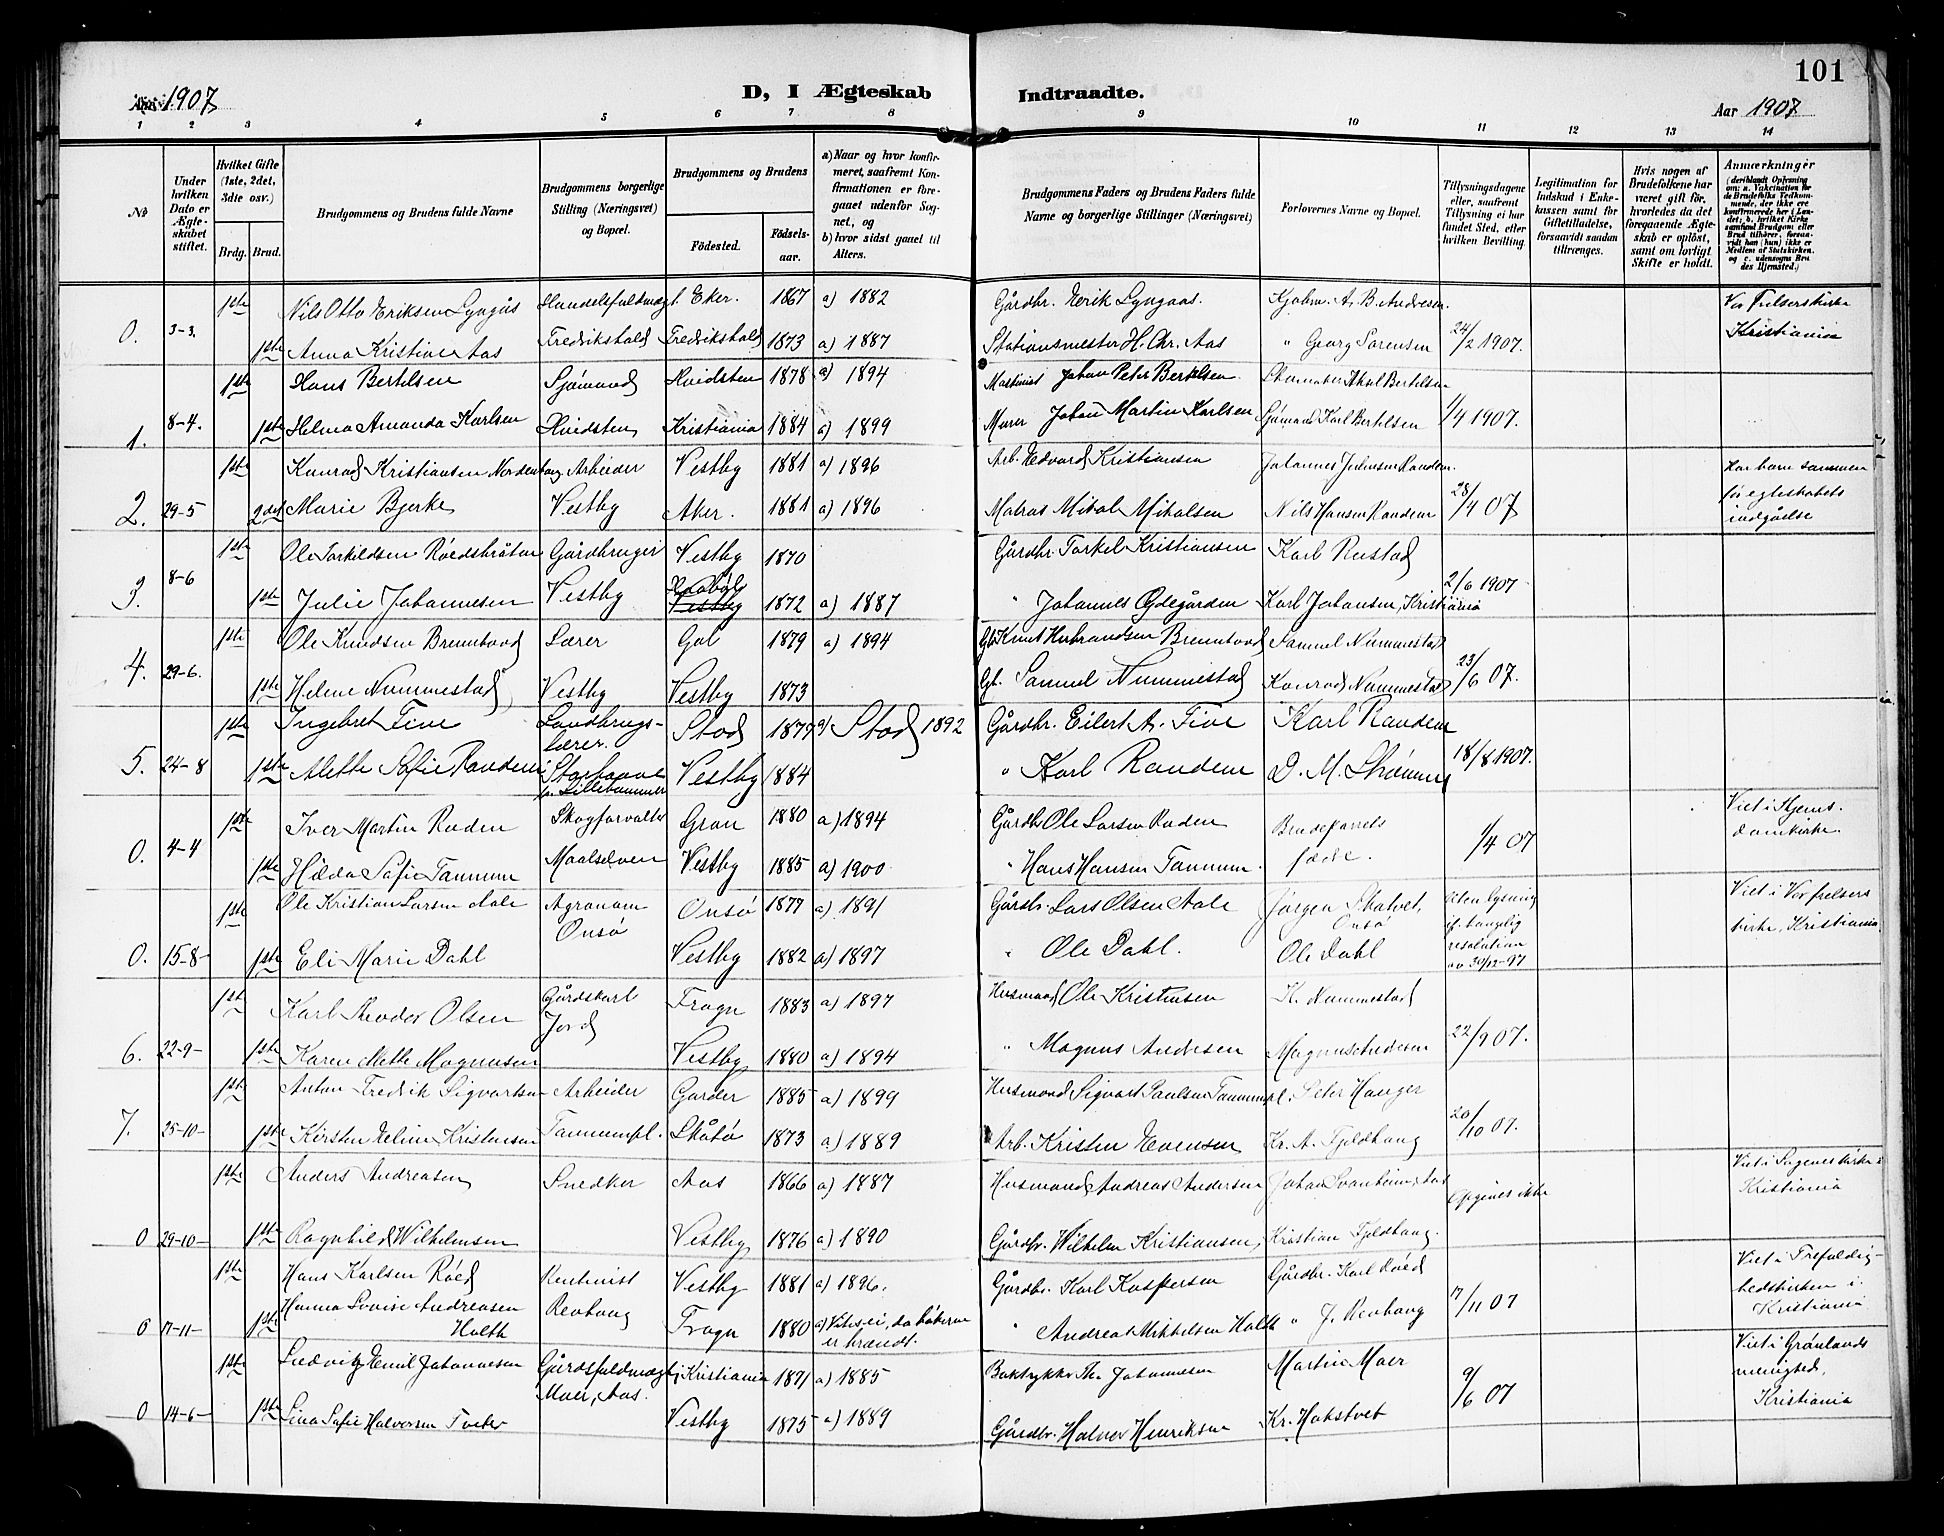 101
Aar 1907
D, I Ægteskab Indtraadte.
Aar 1907
1 2 3 4 5 6 7 8 9 10 11 12 13 14
No
Under hvilken Dato er Ægteskabet stiftet.
Hvilket Gifte (1ste, 2det, 3die osv.)
Brdg. Brud.
Brudgommens og Brudens fulde Navne
Brudgommens borgerlige Stilling (Næringsvei) og Bopæl.
Brudgommens og Brudens
Födested. Födsels-aar.
a) Naar og hvor konfirmeret, saafremt Konfirmationen er foregaaet udenfor Sognet, og
b) hvor sidst gaaet til Alters.
Brudgommens Faders og Brudens Faders fulde Navne og borgerlige Stillinger (Næringsvei)
Forlovernes Navne og Bopæl.
Tillysningsdagene eller, saafremt Tillysning ei har fundet Sted, efter hvilken Bevilling.
Legitimation for Indskud i Enkekassen samt for Giftetilladelse, forsaavidt saadan tiltrænges.
Hvis nogen af Brudefolkene har været gift för, hvorledes da det foregaaende Ægteskab er oplöst, samt om lovligt Skifte er holdt.
Anmærkninger (deriblandt Oplysning om: a. Vakcination for de Brudefolks Vedkommende, der ikke ere konfirmerede her i Landet; b. hvilket Kirkesamfund Brudgom eller Brud tilhörer, forsaavidt han (hun) ikke er Medlem af Statskirken, og c. udensogns Brudes Hjemsted.)
1ste Nils Otto Eriksen Lyngås Handelsfuldmægt. Eker. 1867 a) 1882 Gårdbr. Erik Lyngaas. Kjøbm. A. B. Andresen Vor Frelsers kirke
0. 3-3. 1ste Anna Kristine Aas Fredrikshald Fredrikshald 1873 a) 1887 Stationsmester H. Chr. Aas " Georg Sørensen 24/2 1907. Kristiania
1ste Hans Bertelsen Sjømand Hvidsten 1878 a) 1894 Maskinist Johan Peter Bertelsen. Aksel Bertelsen
1. 8-4. 1ste Helma Amanda Karlsen Hvidsten Kristiania 1884 a) 1899 Murer Johan Martin Karlsen Sjømand Karl Bertelsen 1/4 1907.
1ste Konrad Kristiansen Arbeider Vestby 1881 a) 1896 Arb. Edvard Kristiansen Johannes Randem. Har barn sammen
2. 29-5 2det Marie Bjerke Vestby Aker. 1881 a) 1896 Matros Mikal Mikalsen Nils Hansen Randem 28/4 07 før egteskabets indgåelse
1ste Ole Torkildsen Røedsbråtan Gårdbruger Vestby 1870 Gårdbr. Torkel Kristiansen Karl Rustad
3. 8-6 1ste Julie Johannesen Vestby Kråkstad Vestby 1872 a) 1887 " Johannes Ødegården Karl Johansen, Kristiania 2/6 1907
1ste Ole Knudsen Brenntood Lærer Gol 1879 a) 1894 Gb. Knut Brenntood Samuel Nummestad
4. 29-6. 1ste Helene Nummestad Vestby Vestby 1873 Gb. Samuel Nummestad Konrad Nummestad 23/6 07.
1ste Ingebret Five Landbrugslærer. Stod 1877 a) Stod 1892 Gårdbr. Eilert A. Five Karl Randem
5. 24-8 1ste Alette Sofie Randem Storhove p. Lillehammer Vestby 1884 " Karl Randem D. M. 18/8 1907.
1ste Iver Martin Ruden Skogforvalter Gran 1880 a) 1894 Gårdbr Ole Larsen Ruden Brudeparrets Viet i
0. 4-4 1ste Hilda Sofie Tannum Maalselven Vestby 1885 a) 1900 " Hans Hansen Tannum. fædre. 1/4 07
1ste Ole Kristian Larsen Aale Agronom Onsø 1877 a) 1891 Gårdbr. Lars Olsen Aale Jørgen Skatvet, Onsø Uten lysning if. kongelig Viet i Vor frelsers
0. 15-8 1ste Eli Marie Dahl Onsø Vestby 1882 a) 1897 " Ole Dahl. Ole Dahl resolution av 30/12-97 kirke, Kristiania.
1ste Karl Teodor Olsen Gårdskarl Jord Frogn 1883 a) 1897 Husmand Ole Kristensen K. Nummestad
6. 22-9 1ste Karen Mette Magnusen Vestby 1880 a) 1894 " Magnus Andresen Magnus Andresen 22/9 07.
1ste Anton Fredrik Sigvartsen Arbeider Garder 1885 a) 1899 Husmand Sigvart Paulsen Tannumpl. Peter Hauger
7. 25-10 1ste Kirsten Eline Kristensen Tannumpl. Skåtø 1873 a) 1889 Arb. Kristen Evensen Kr. A. Fjeldhaug 20/10 07.
1ste Anders Andreasen Snedker Aas 1866 a) 1887 Husmand Andreas Andersen Johan Svanheim, Aas Opgives ikke Viet i Sagenes kirke i Kristiania
0 29-10 1ste Ragnhild Wilhelmsen Vestby 1876 a) 1890 Gårdbr. Wilhelm Kristiansen, Kristian Fjeldhaug.
1ste Hans Karlsen Røed Vestby 1881 a) 1896. Gårdbr. Karl Kaspersen Gårdbr. Karl Røed Viet i Trefoldighedskirken i Kristiania
0 7-11 1ste Hanna Lovise Andreasen Holth Revhaug Frogn 1880 a) Vites ei, da bøkerne er brændt. " Andreas Mikkelsen Holth " J. Revhaug 7/11 07
1ste Ludvig Emil Johannesen Gårdsfuldmægtig Kristiania 1871 a) 1885 Boktrykker Th. Johannesen Martin Moer Viet i Grønlands menighed, Kristiania
0 14-6 1ste Lina Sofie Halvorsen Tveter Moer, Aas. Vestby 1875 a) 1889 Gårdbr. Halvor Henriksen Kr. Hakstvet 9/6 07